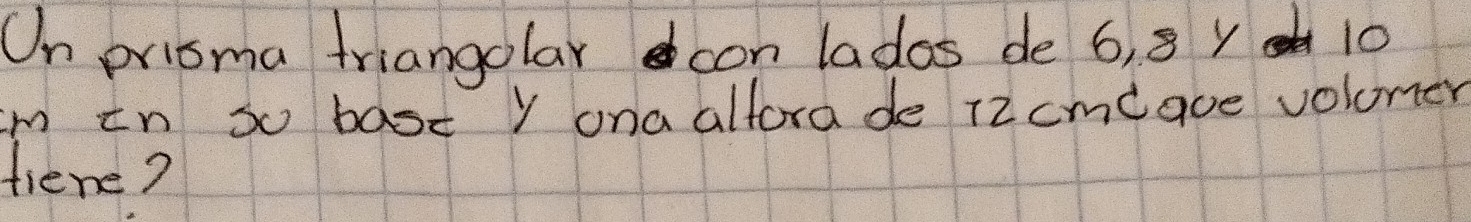 Un prisma triangular con lados de 6, 8 y 10
cm en su base y una altura de 12 cm ¿que volumen
tiene?